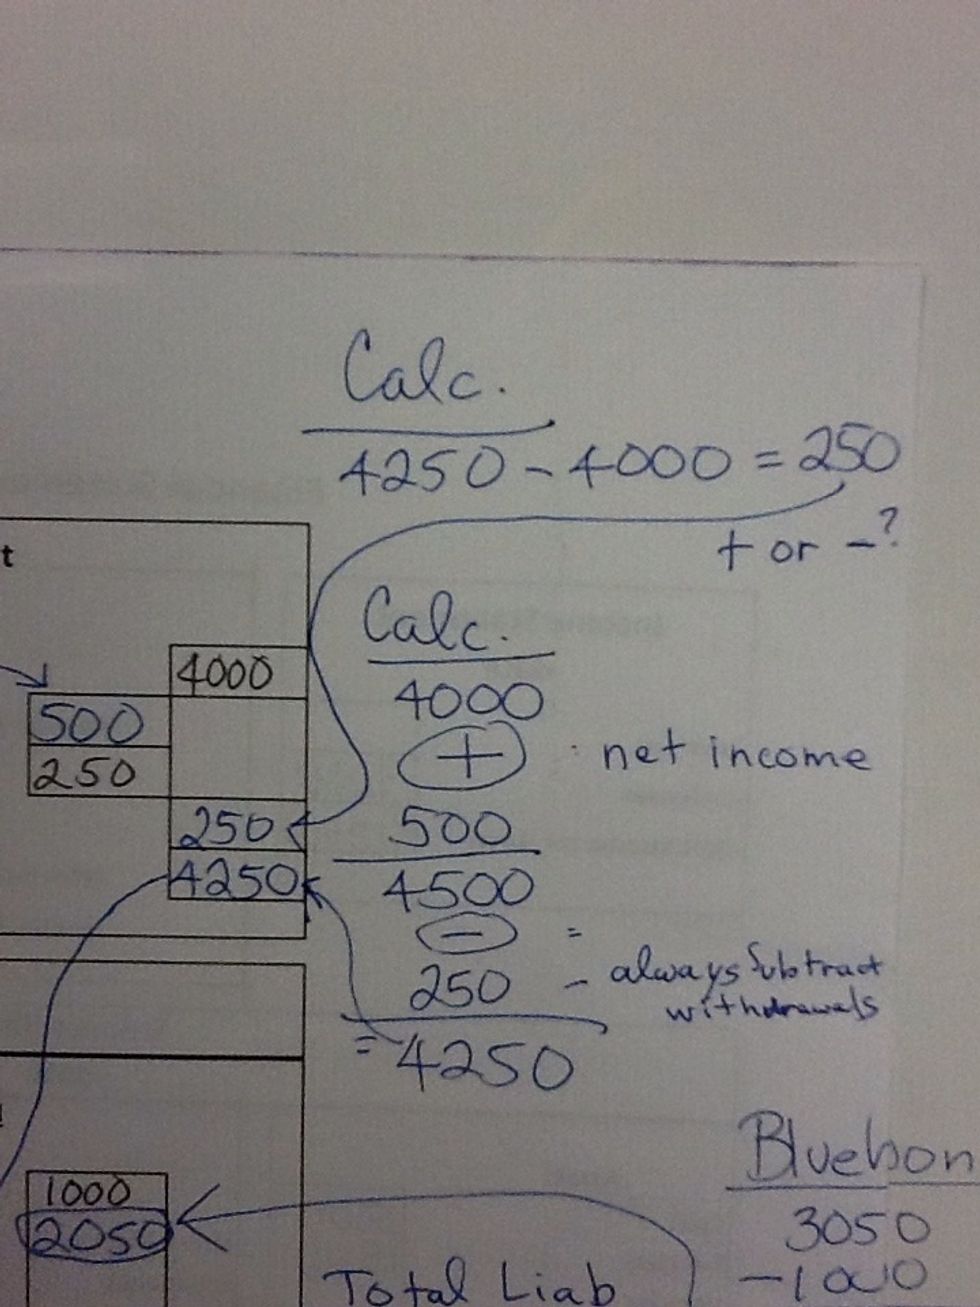 Calc.
4250 - 4000 = 250
+ or -?
t
Calc.
4000
4000
500
+ net income
250
250
500
4250
4500
- =
250 - always subtract
withdrawals
= 4250
Bluebon
1000
3050
2050
-1000
Total Liab